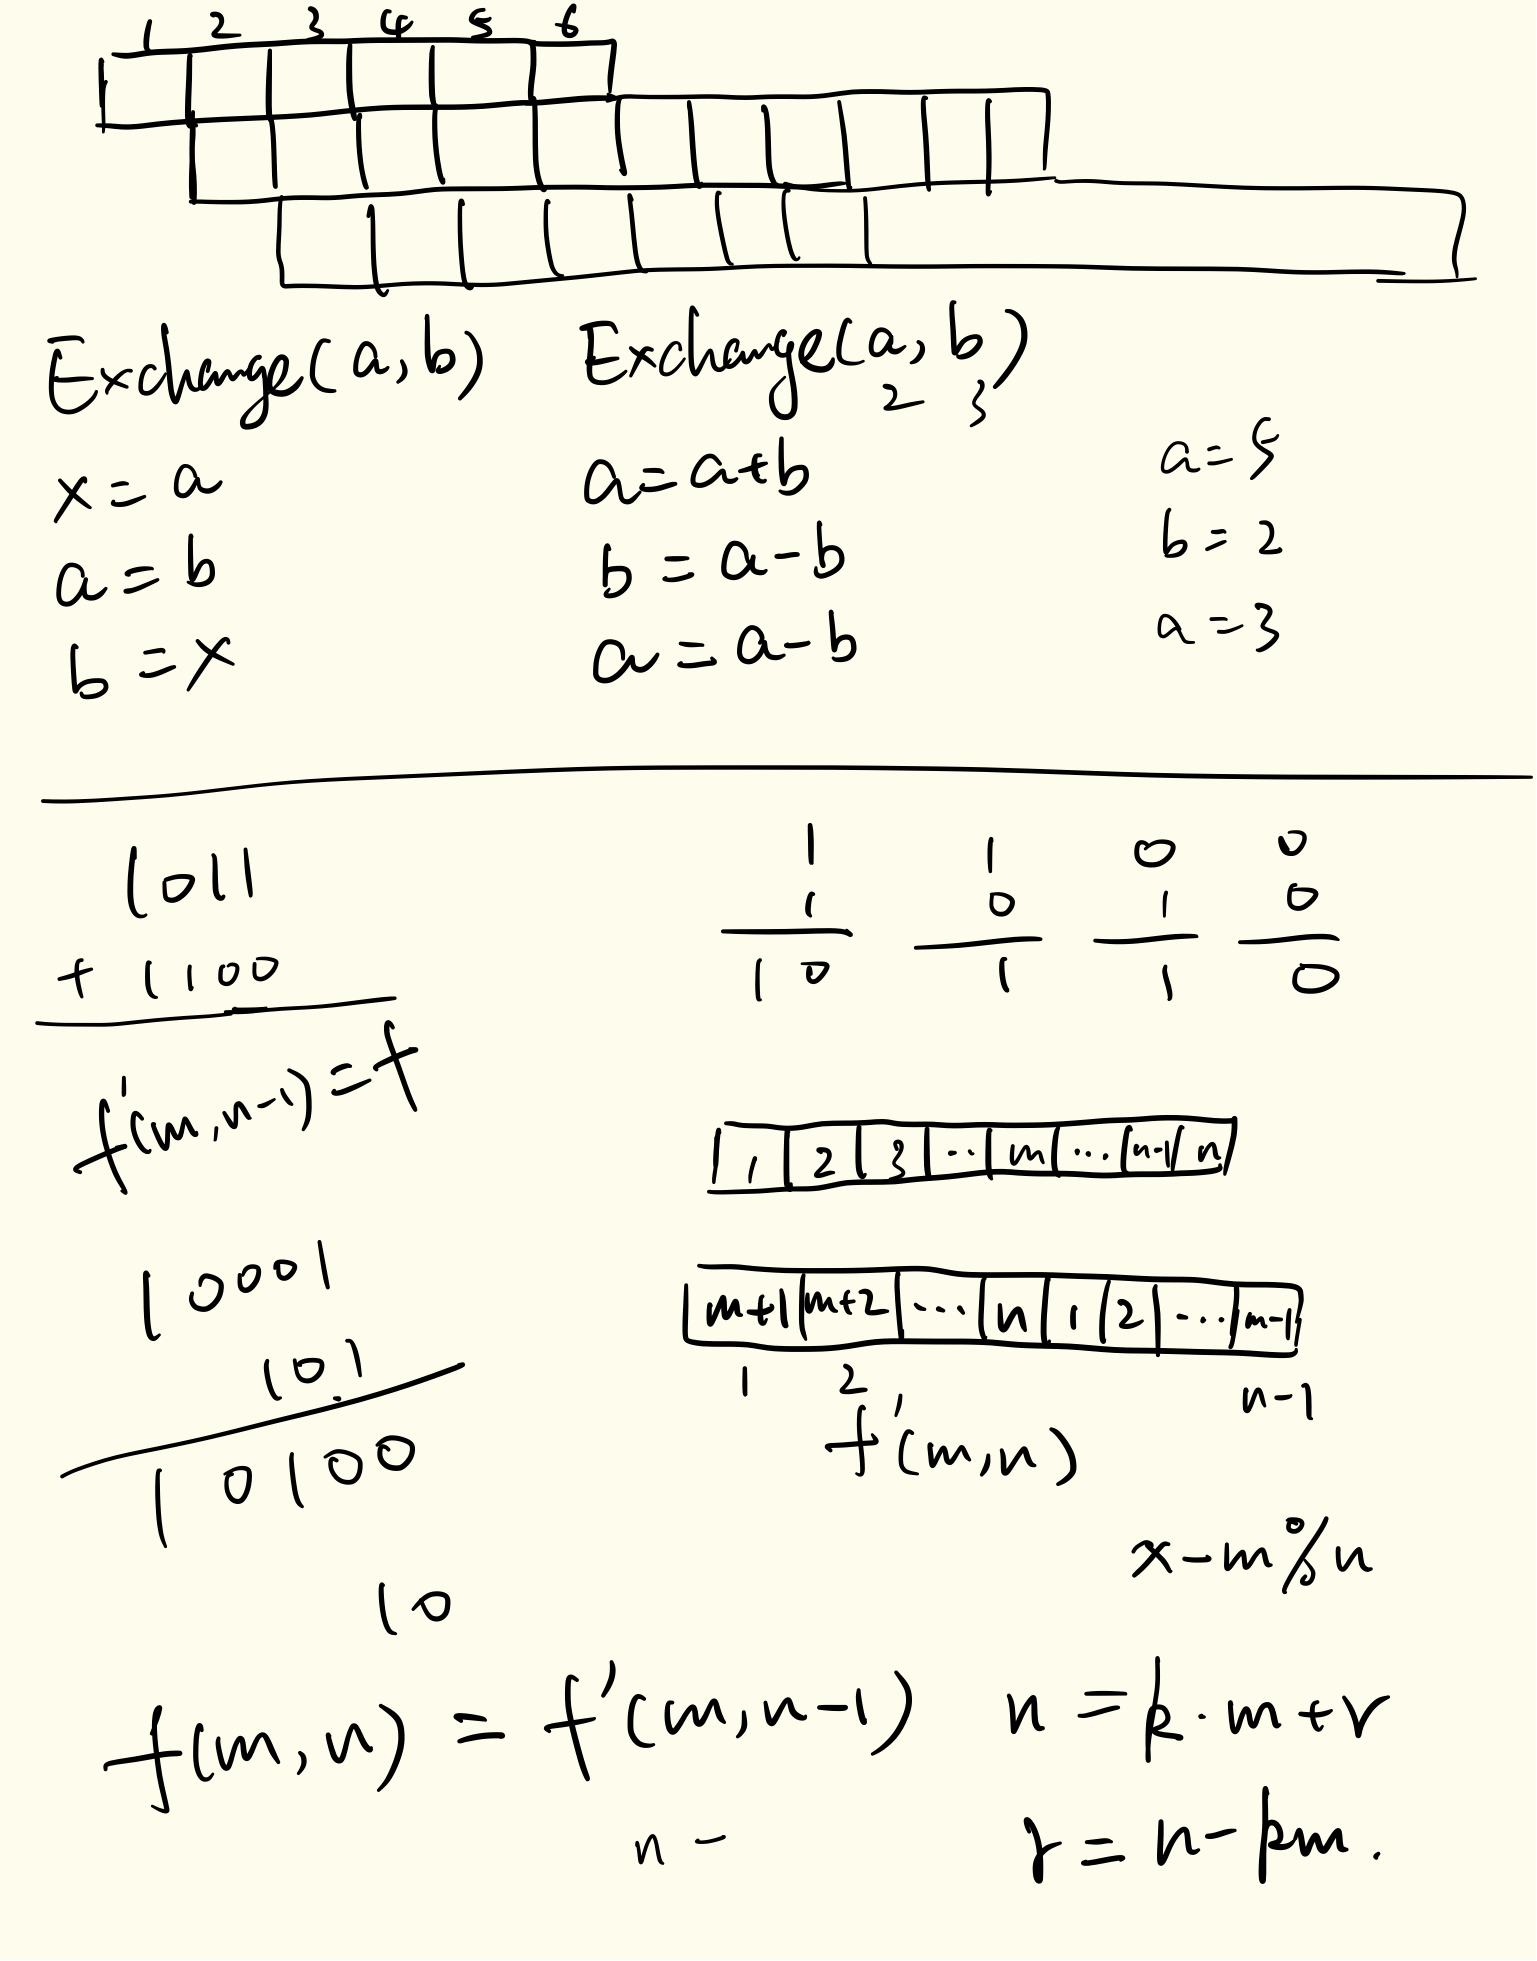 1 2 3 4 5 6
Exchange(a,b)
x = a
a = b
b = x
Exchange(a,b)
2 3
a = a+b
b = a-b
a = a-b
a = 5
b = 2
a = 3
1011
+ 1100
f'(m,n-1) = f
10001
101
10100
10
1 1 0 0
1 0 1 0
10 1 1 0
1 2 3 ... m ... n-1 n
m+1 m+2 ... n 1 2 ... m-1
1 2 n-1
f'(m,n)
x-m%n
f(m,n) = f'(m,n-1)
n -
n = k·m+r
r = n-km.